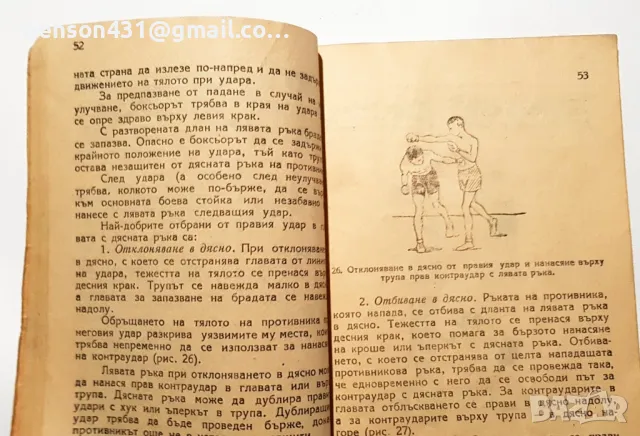 enson431@gmail.co
52
ната страна да излезе по-напред и да не задър
движението на тялото при удара.
За предпазване от падане в случай на
улучване, боксьорът трябва в края на удара
се опре здраво върху левия крак.
С разтворената длан на лявата ръка брад
се запазва. Опасно е боксьорът да се задър
крайното положение на удара, тъй като труп
остава незащитен от дясната ръка на противни
След удара (а особено след неулучван
трябва, колкото може по-бърже, да се въ
към основната боева стойка или незабавно
нанесе с лявата ръка следващия удар.
Най-добрите отбрани от правия удар в г
с дясната ръка са:
1. Отклоняване в дясно. При отклоняване в
дясно, с което се отстранява главата от лини
на удара, тежестта на тялото се пренася върх
десния крак. Трупът се навежда малко в дясно
а главата за запазване на брадата се навежд
надолу.
Обръщането на тялото на противника по
неговия удар разкрива уязвимите му места, кои
трябва непременно да се използват за нанася
на контраудар (рис. 26).
Лявата ръка при отклоняването в дясно мо
да нанася прав контраудар в главата или въ
трупа. Дясната ръка може да дублира прави
удари с хук или ъперкът в трупа. Дублиращи
удар трябва да бъде проведен бърже, дока
противникът още не в
53
26. Отклоняване в дясно от правия удар и нанасяне върху
трупа прав контраудар с лявата ръка.
2. Отбиване в дясно. Ръката на противника,
която напада, се отбива с дланта на лявата ръка
в дясно. Тежестта на тялото се пренася върху
десния крак, което помага за бързото нанасяне
на кроше или ъперкът с дясната ръка. Отбива-
нето, с което се отстранява от целта нападащата
противникова ръка, трябва да се провежда така,
че едновременно с него да се освободи път за
контраудар с дясната ръка. За контраударите в
главата отблъскването се прави в дясно надолу,
а за контраударите върху трупа в дясно на-
горе (рис. 27).
BAZAR